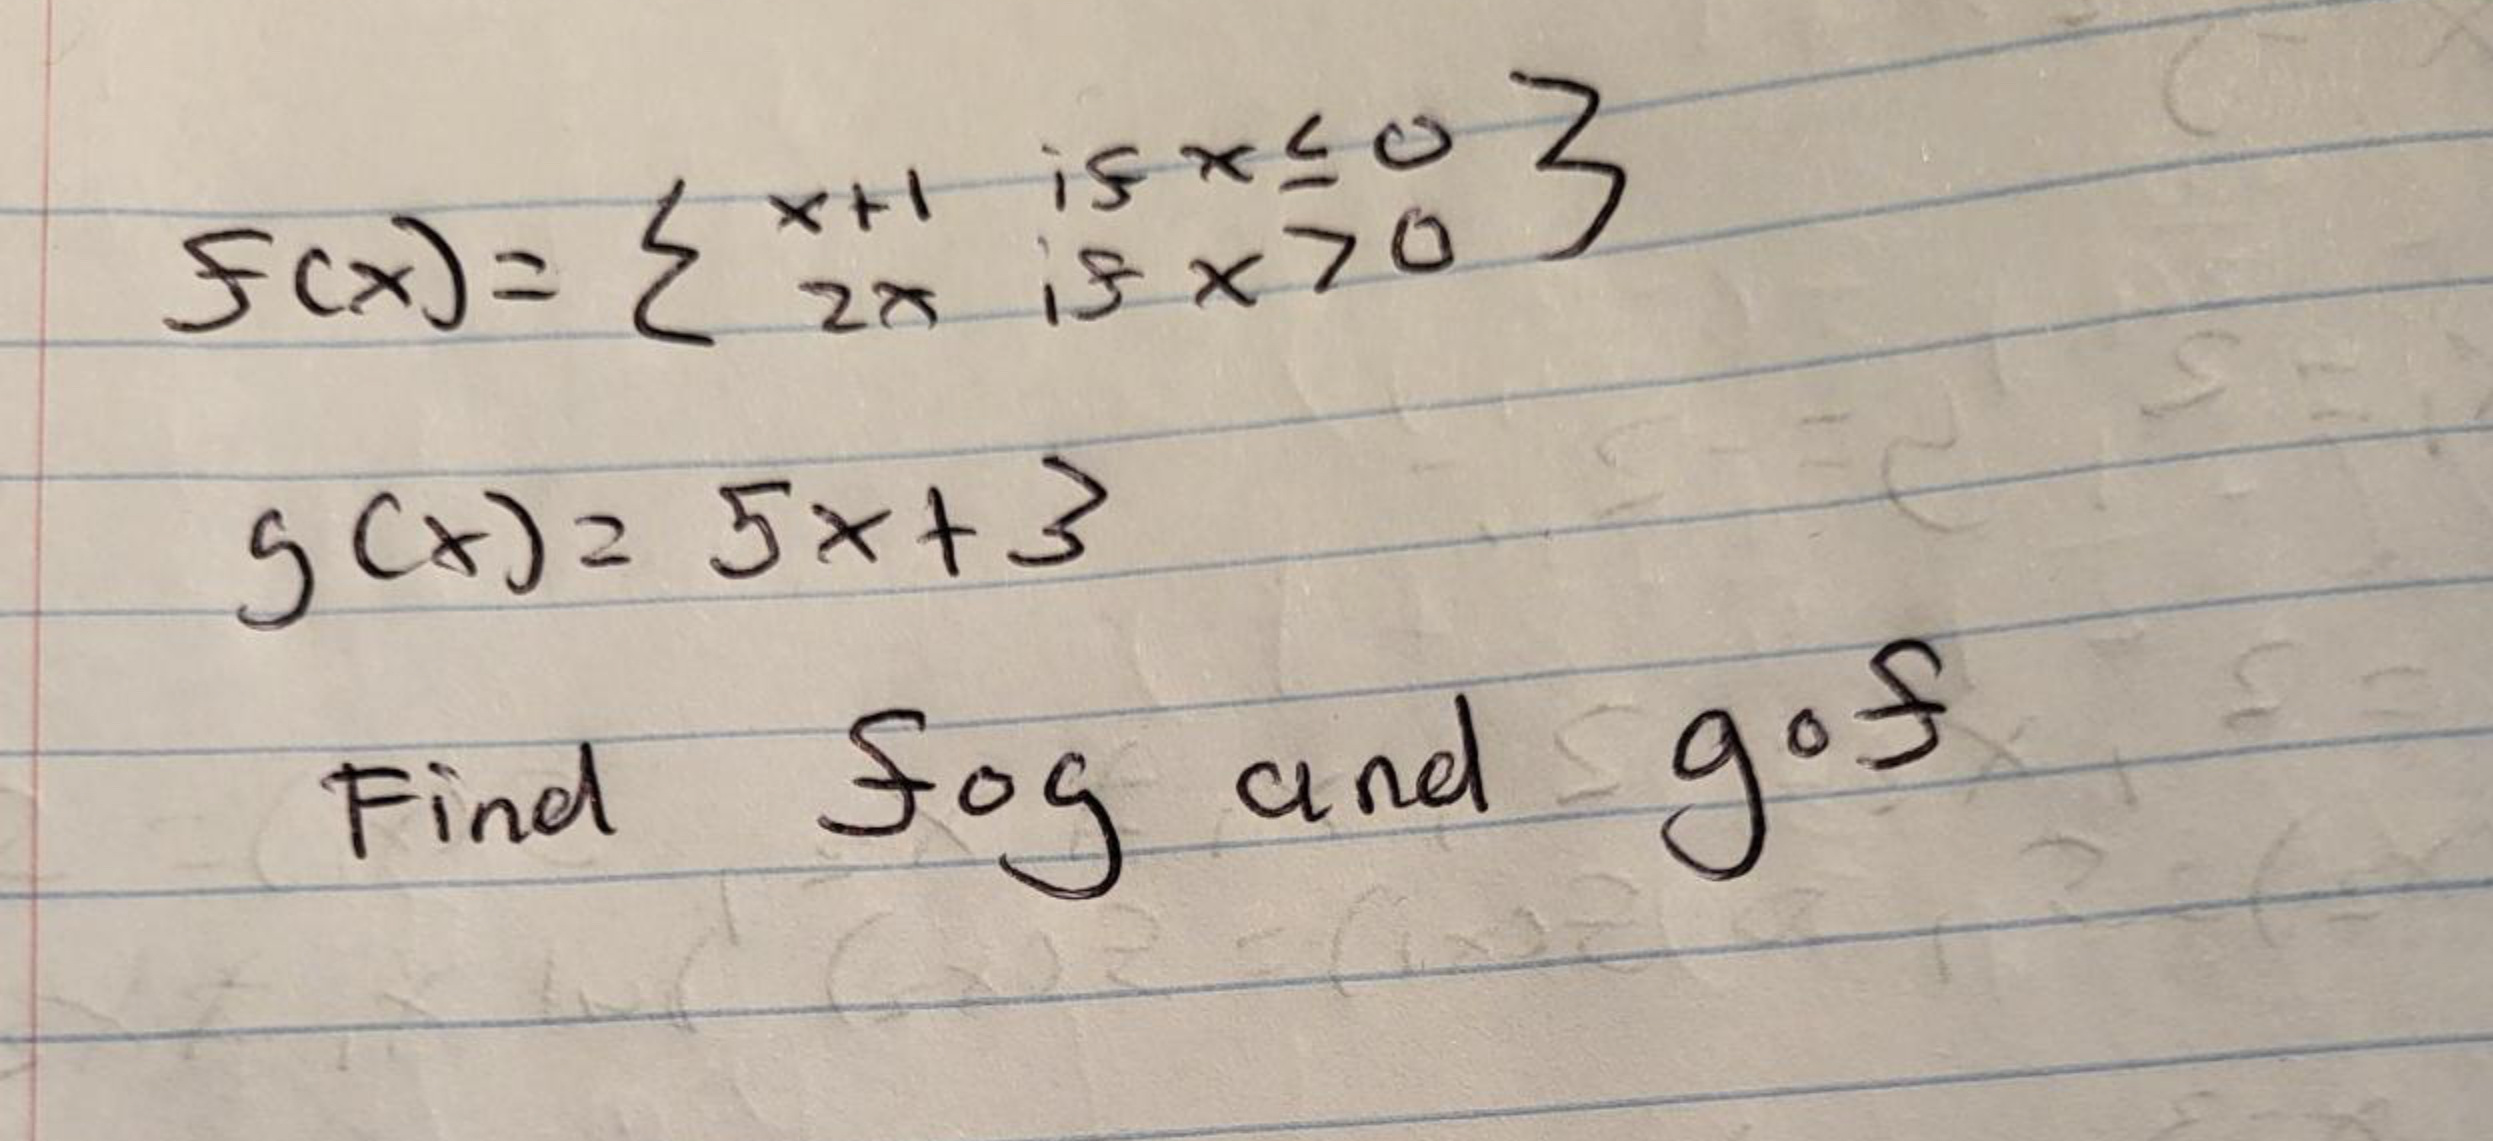 f(x) = { x+1 if x ≤ 0 }
2x if x > 0
g(x) = 5x + 3
Find f∘g and g∘f